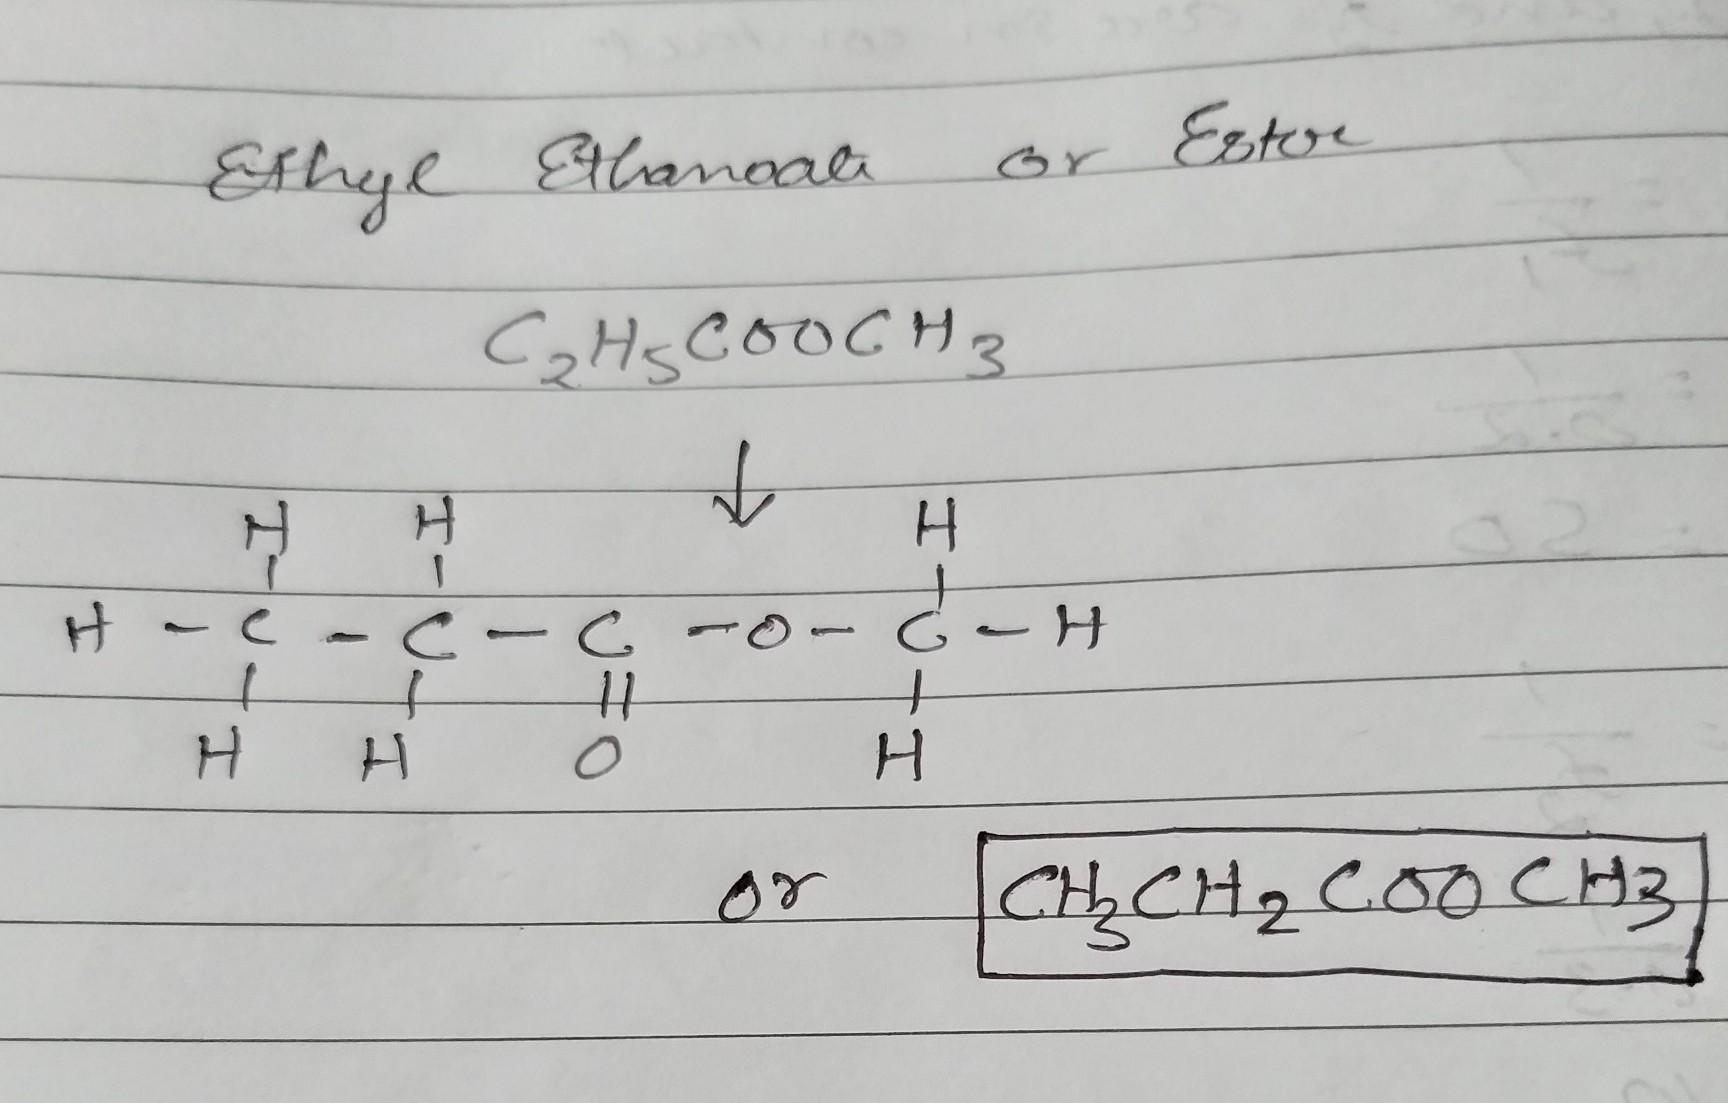 Ethyl Ethanoate or Ester
C₂H₅COOCH₃
↓
H H H
H - C - C - C - O - C - H
H H O H
or CH₃CH₂COOCH₃